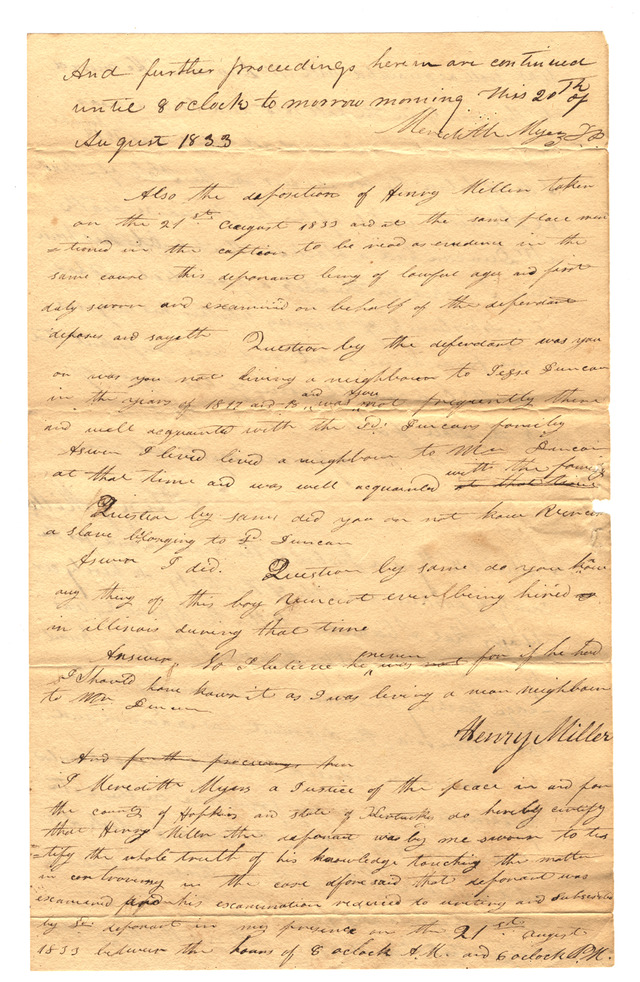 And further proceedings herein are continued
until 8 oclock to morrow morning this 20th of
August 1833 Meredith Myers J P
Also the deposition of Henry Miller taken
on the 21st August 1833 and at the same place men
tioned in the caption to be read as evidence in the
same cause this deponant being of lawful age and first
duly sworn and examined on behalf of the defendant
deposes and sayeth Question by the defendant was you
or was you not living a neighbour to Jesse Duncan
in the years of 1817 and 18 and was you not frequently there
and well acquanted with the Sd. Duncans family
Answer I lived lived a neighbour to Mr Duncan
at that time and was well acquanted with the family at that time
Question by same did you or not know
a slave belonging to Sd Duncan
Answer I did. Question by same do you know
any thing of this boy ever being hired
in illinois during that time
Answer No I believe he never was not for if he had
I should have known it as I was living a near neighbour
to Mr Duncan
Henry Miller
And further proceedings her
I Meredith Myers a Justice of the peace in and for
the county of Hopkins and state of Kentucky do hereby certify
that Henry Miller the deponant was by me sworn to tes
tify the whole truth of his knowledge touching the matter
in controversy in the case afore said that deponant was
examined and his examination reduced to writing and subscribed
by Sd deponant in my presence on the 21st august
1833 between the hours of 8 oclock A.M. and 6 oclock P.M.